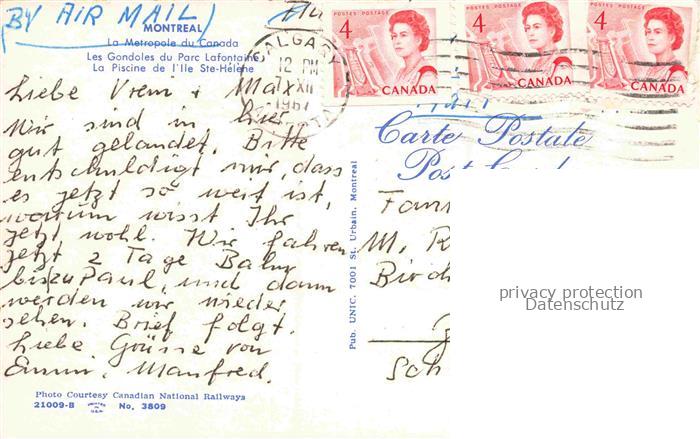 BY AIR MAIL
MONTREAL
La Metropole du Canada
Les Gondoles du Parc Lafontaine
La Piscine de l'Ile Ste-Hélène
CALGARY
12 PM
XII
1967
4
POSTES POSTAGE
CANADA
4
POSTES POSTAGE
CANADA
4
POSTES POSTAGE
CANADA
Liebe Vreni + Max
Wir sind in hier
gut gelandet. Bitte
entschuldigt mir, dass
es jetzt so weit ist,
warum wisst Ihr
jetzt wohl. Wir fahren
jetzt 2 Tage Bahn
bis zu Paul, und dann
werden wir wieder
sehen. Brief folgt.
Liebe Grüsse von
Manfred.
Carte Postale
Fam
M. R
Birch
Sch
Pub. UNIC, 7001 St. Urbain, Montreal
privacy protection
Datenschutz
Photo Courtesy Canadian National Railways
21009-B
No. 3809